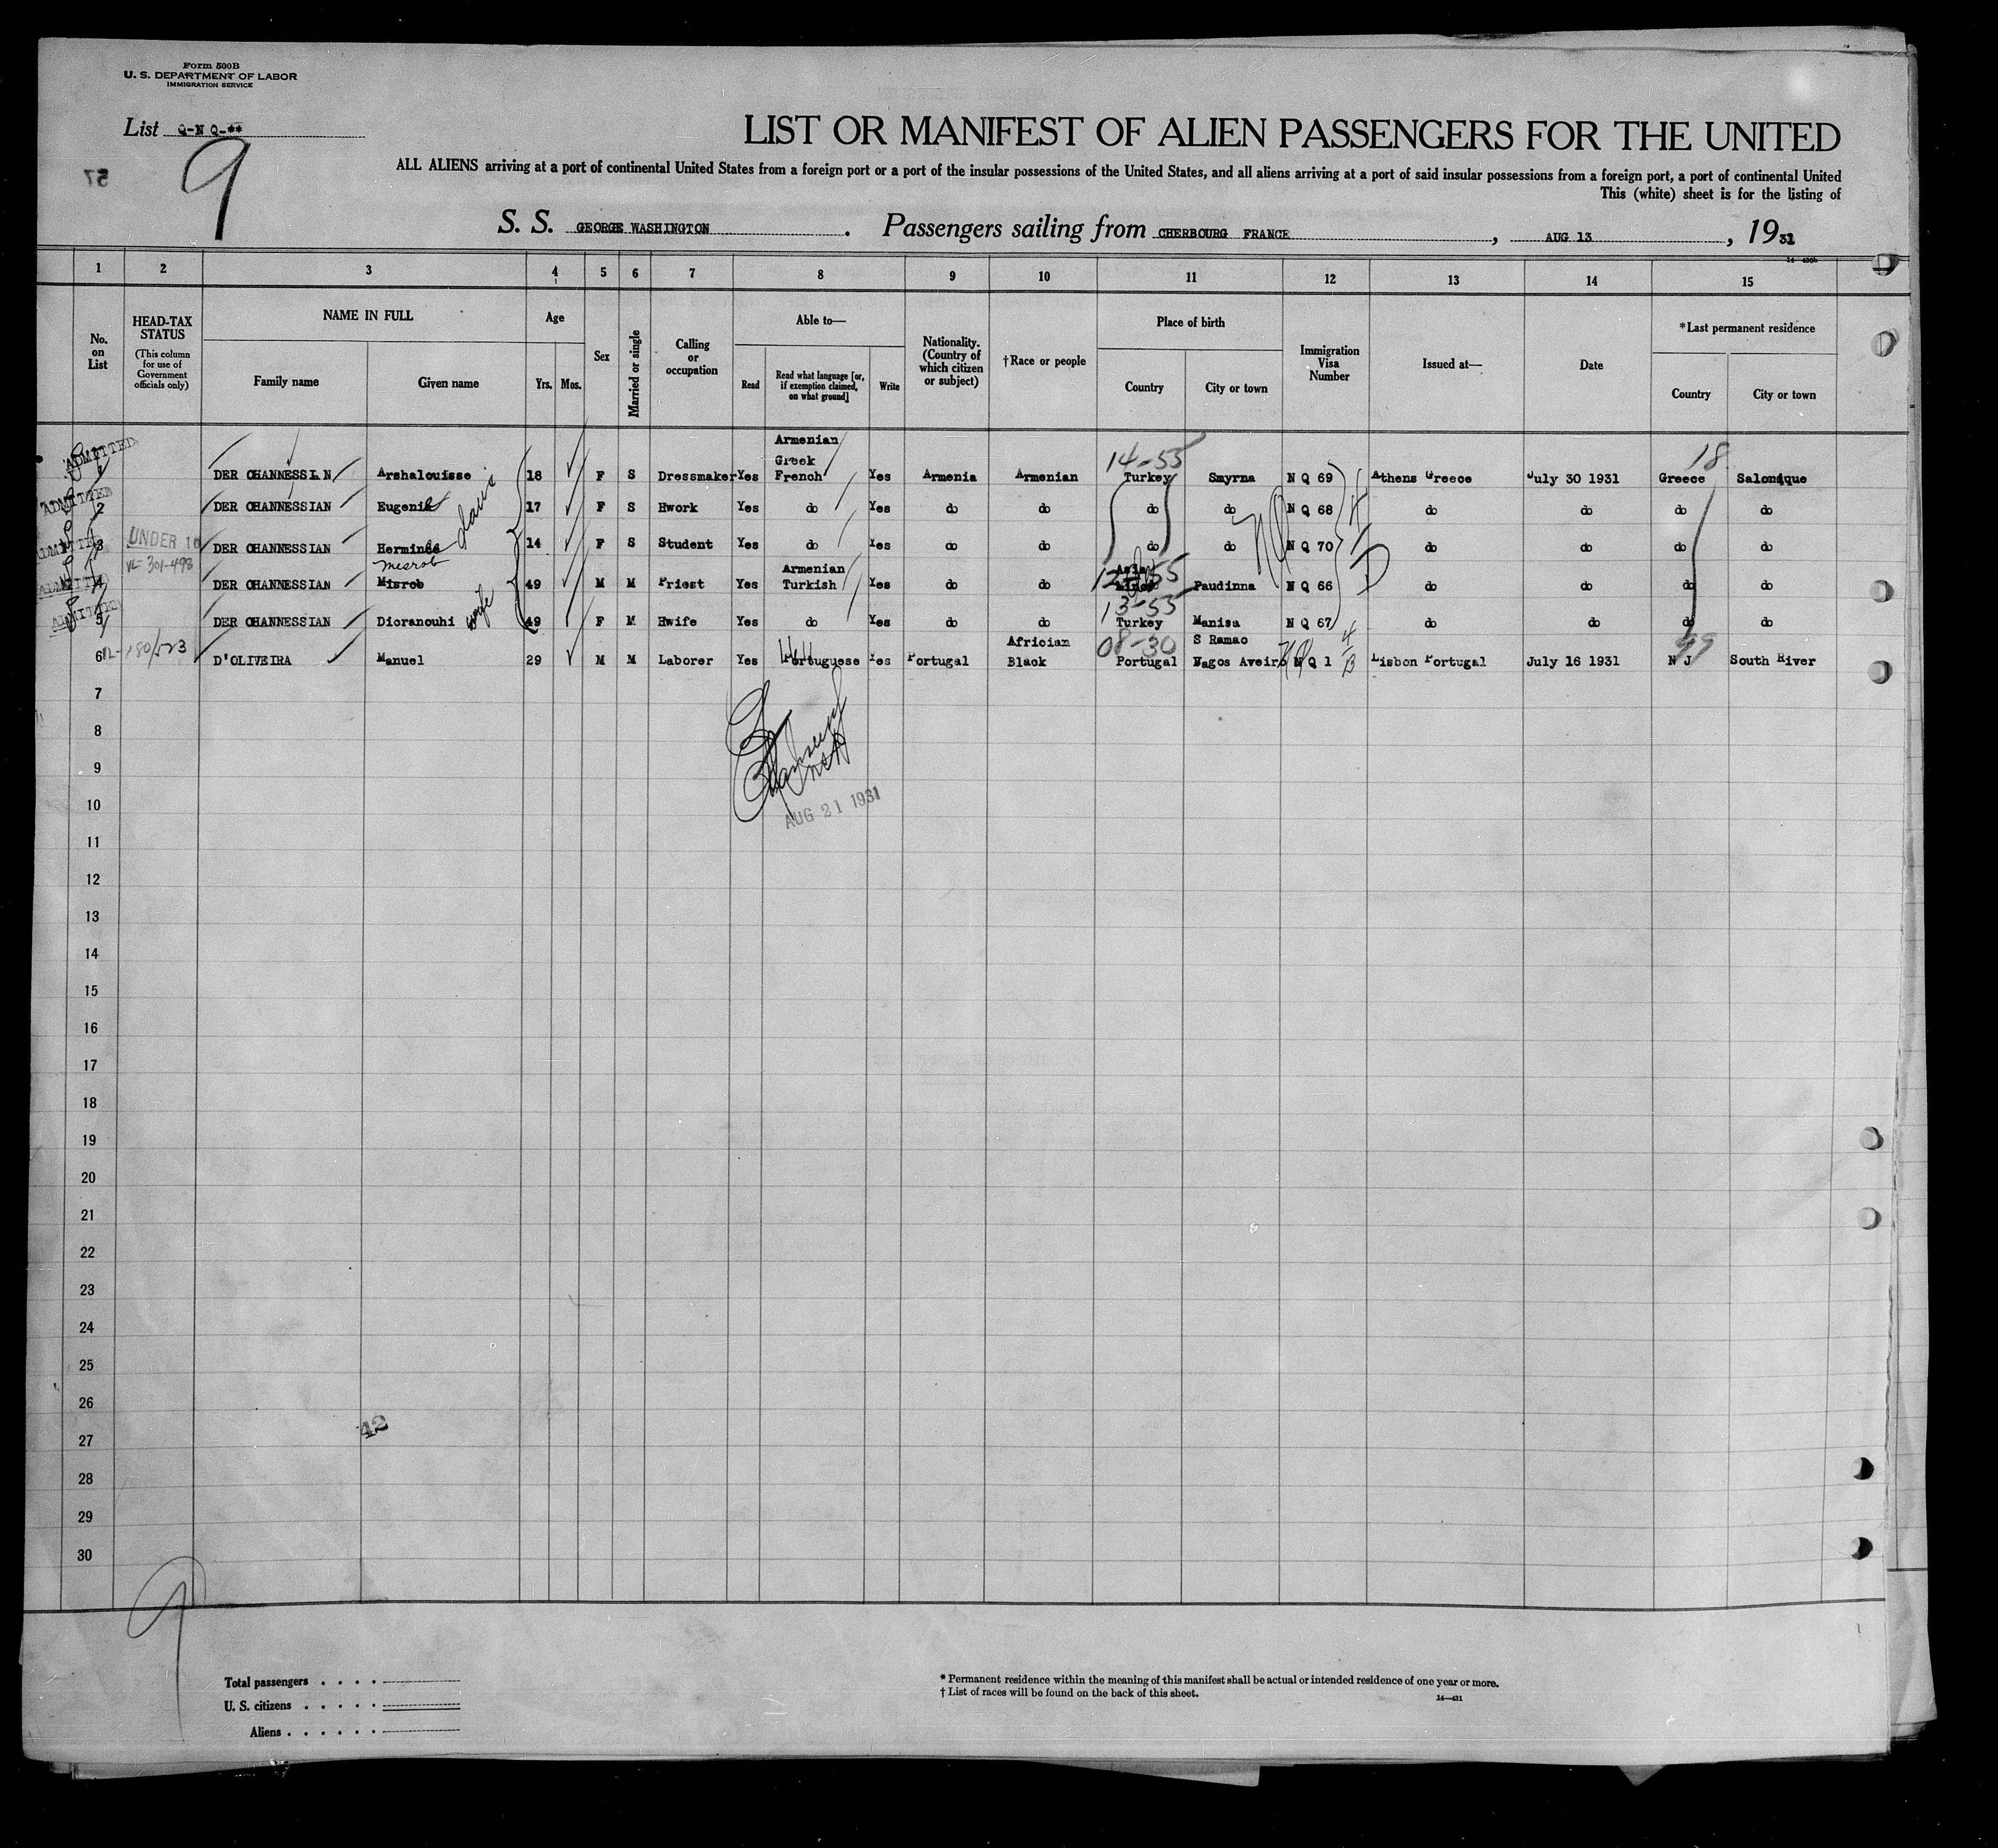 Form 500B
U. S. DEPARTMENT OF LABOR
IMMIGRATION SERVICE
List Q-N Q-**
9
57
LIST OR MANIFEST OF ALIEN PASSENGERS FOR THE UNITED
ALL ALIENS arriving at a port of continental United States from a foreign port or a port of the insular possessions of the United States, and all aliens arriving at a port of said insular possessions from a foreign port, a port of continental United
This (white) sheet is for the listing of
S. S. GEORGE WASHINGTON. Passengers sailing from CHERBOURG FRANCE, AUG 13, 1931
1 2 3 4 5 6 7 8 9 10 11 12 13 14 15
No. on List
HEAD-TAX STATUS (This column for use of Government officials only)
NAME IN FULL
Family name Given name
Age
Yrs. Mos.
Sex
Married or single
Calling or occupation
Able to—
Read
Read what language [or, if exemption claimed, on what ground]
Write
Nationality. (Country of which citizen or subject)
†Race or people
Place of birth
Country City or town
Immigration Visa Number
Issued at—
Date
*Last permanent residence
Country City or town
Armenian
Greek 14-55 18
ADMITTED DER OHANNESSIAN Arshalouisse 18 F S Dressmaker Yes French Yes Armenia Armenian Turkey Smyrna N Q 69 Athens Greece July 30 1931 Greece Salonique
ADMITTED 2 DER OHANNESSIAN Eugenie 17 F S Hwork Yes do Yes do do do do N Q 68 do do do do
ADMITTED 3 UNDER 16 DER OHANNESSIAN Herminée 14 F S Student Yes do Yes do do do do N Q 70 do do do do
VL-301-498 Mesrob Armenian Asia
ADMITTED 4 DER OHANNESSIAN Misrob 49 M M Priest Yes Turkish Yes do do Minor Paudinna N Q 66 do do do do
13-55
ADMITTED 5 DER OHANNESSIAN Dicranouhi wife 49 F M Hwife Yes do Yes do do Turkey Manisa N Q 67 do do do do
Africian 08-30 S Ramao 99
6 D'OLIVEIRA Manuel 29 M M Laborer Yes Portuguese Yes Portugal Black Portugal Vagos Aveiro N Q 1 Lisbon Portugal July 16 1931 N J South River
7
8
9
10
AUG 21 1931
11
12
13
14
15
16
17
18
19
20
21
22
23
24
25
26
42
27
28
29
30
9
Total passengers
U. S. citizens
Aliens
* Permanent residence within the meaning of this manifest shall be actual or intended residence of one year or more.
† List of races will be found on the back of this sheet.
14—431